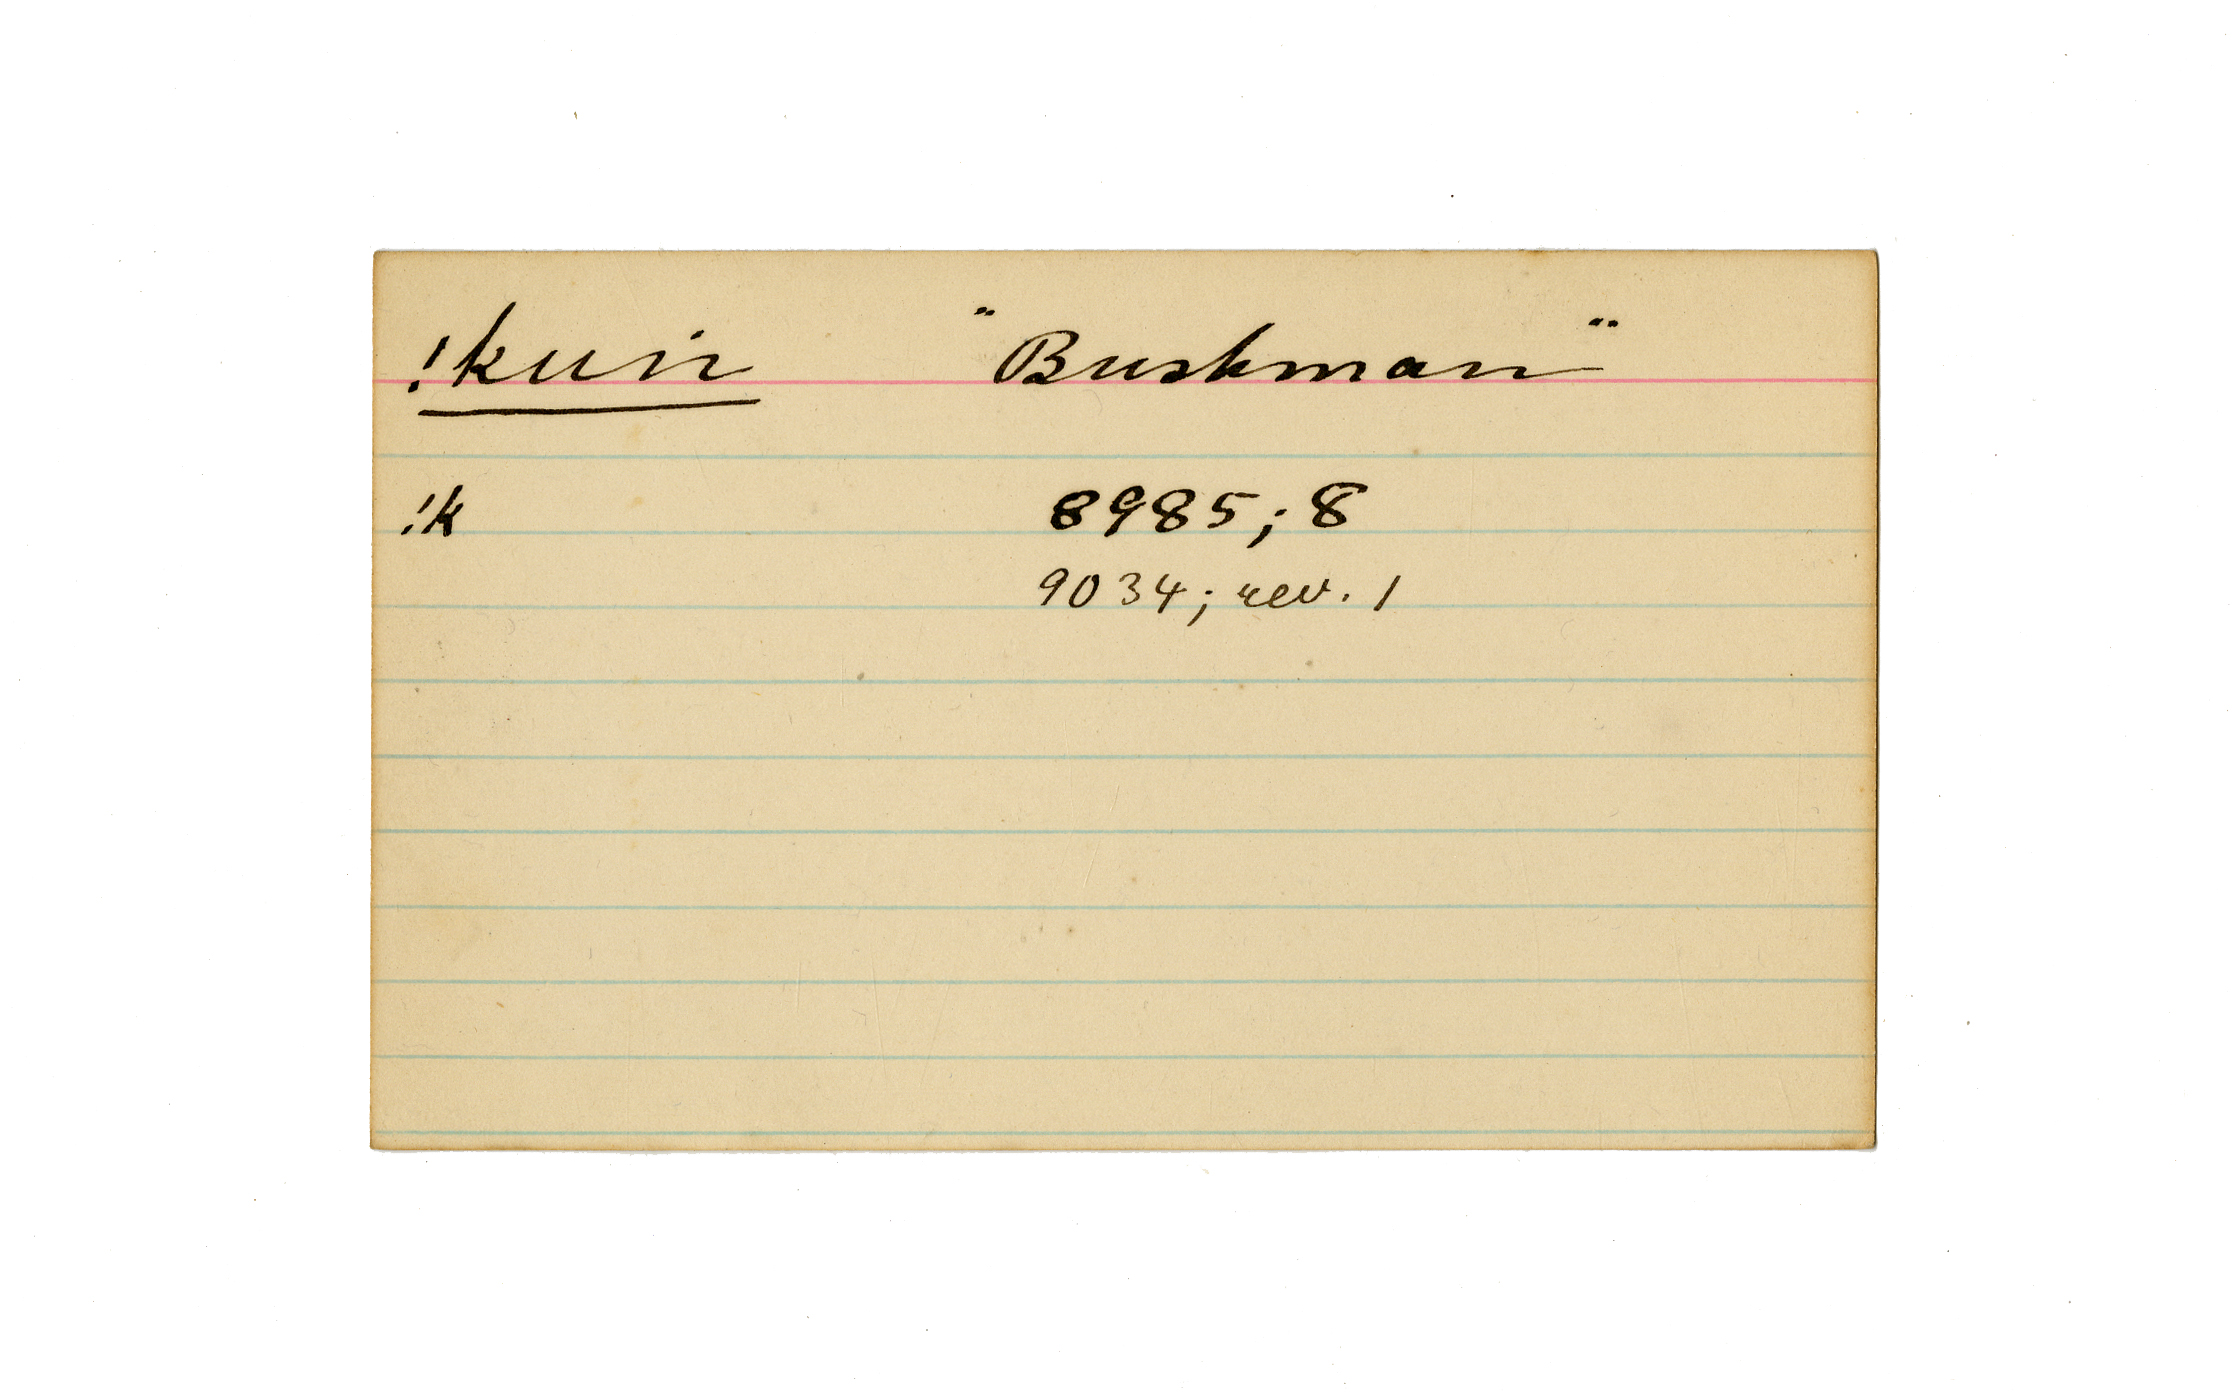 !kuin "Bushman"
!k 8985; 8
9034; rev. 1